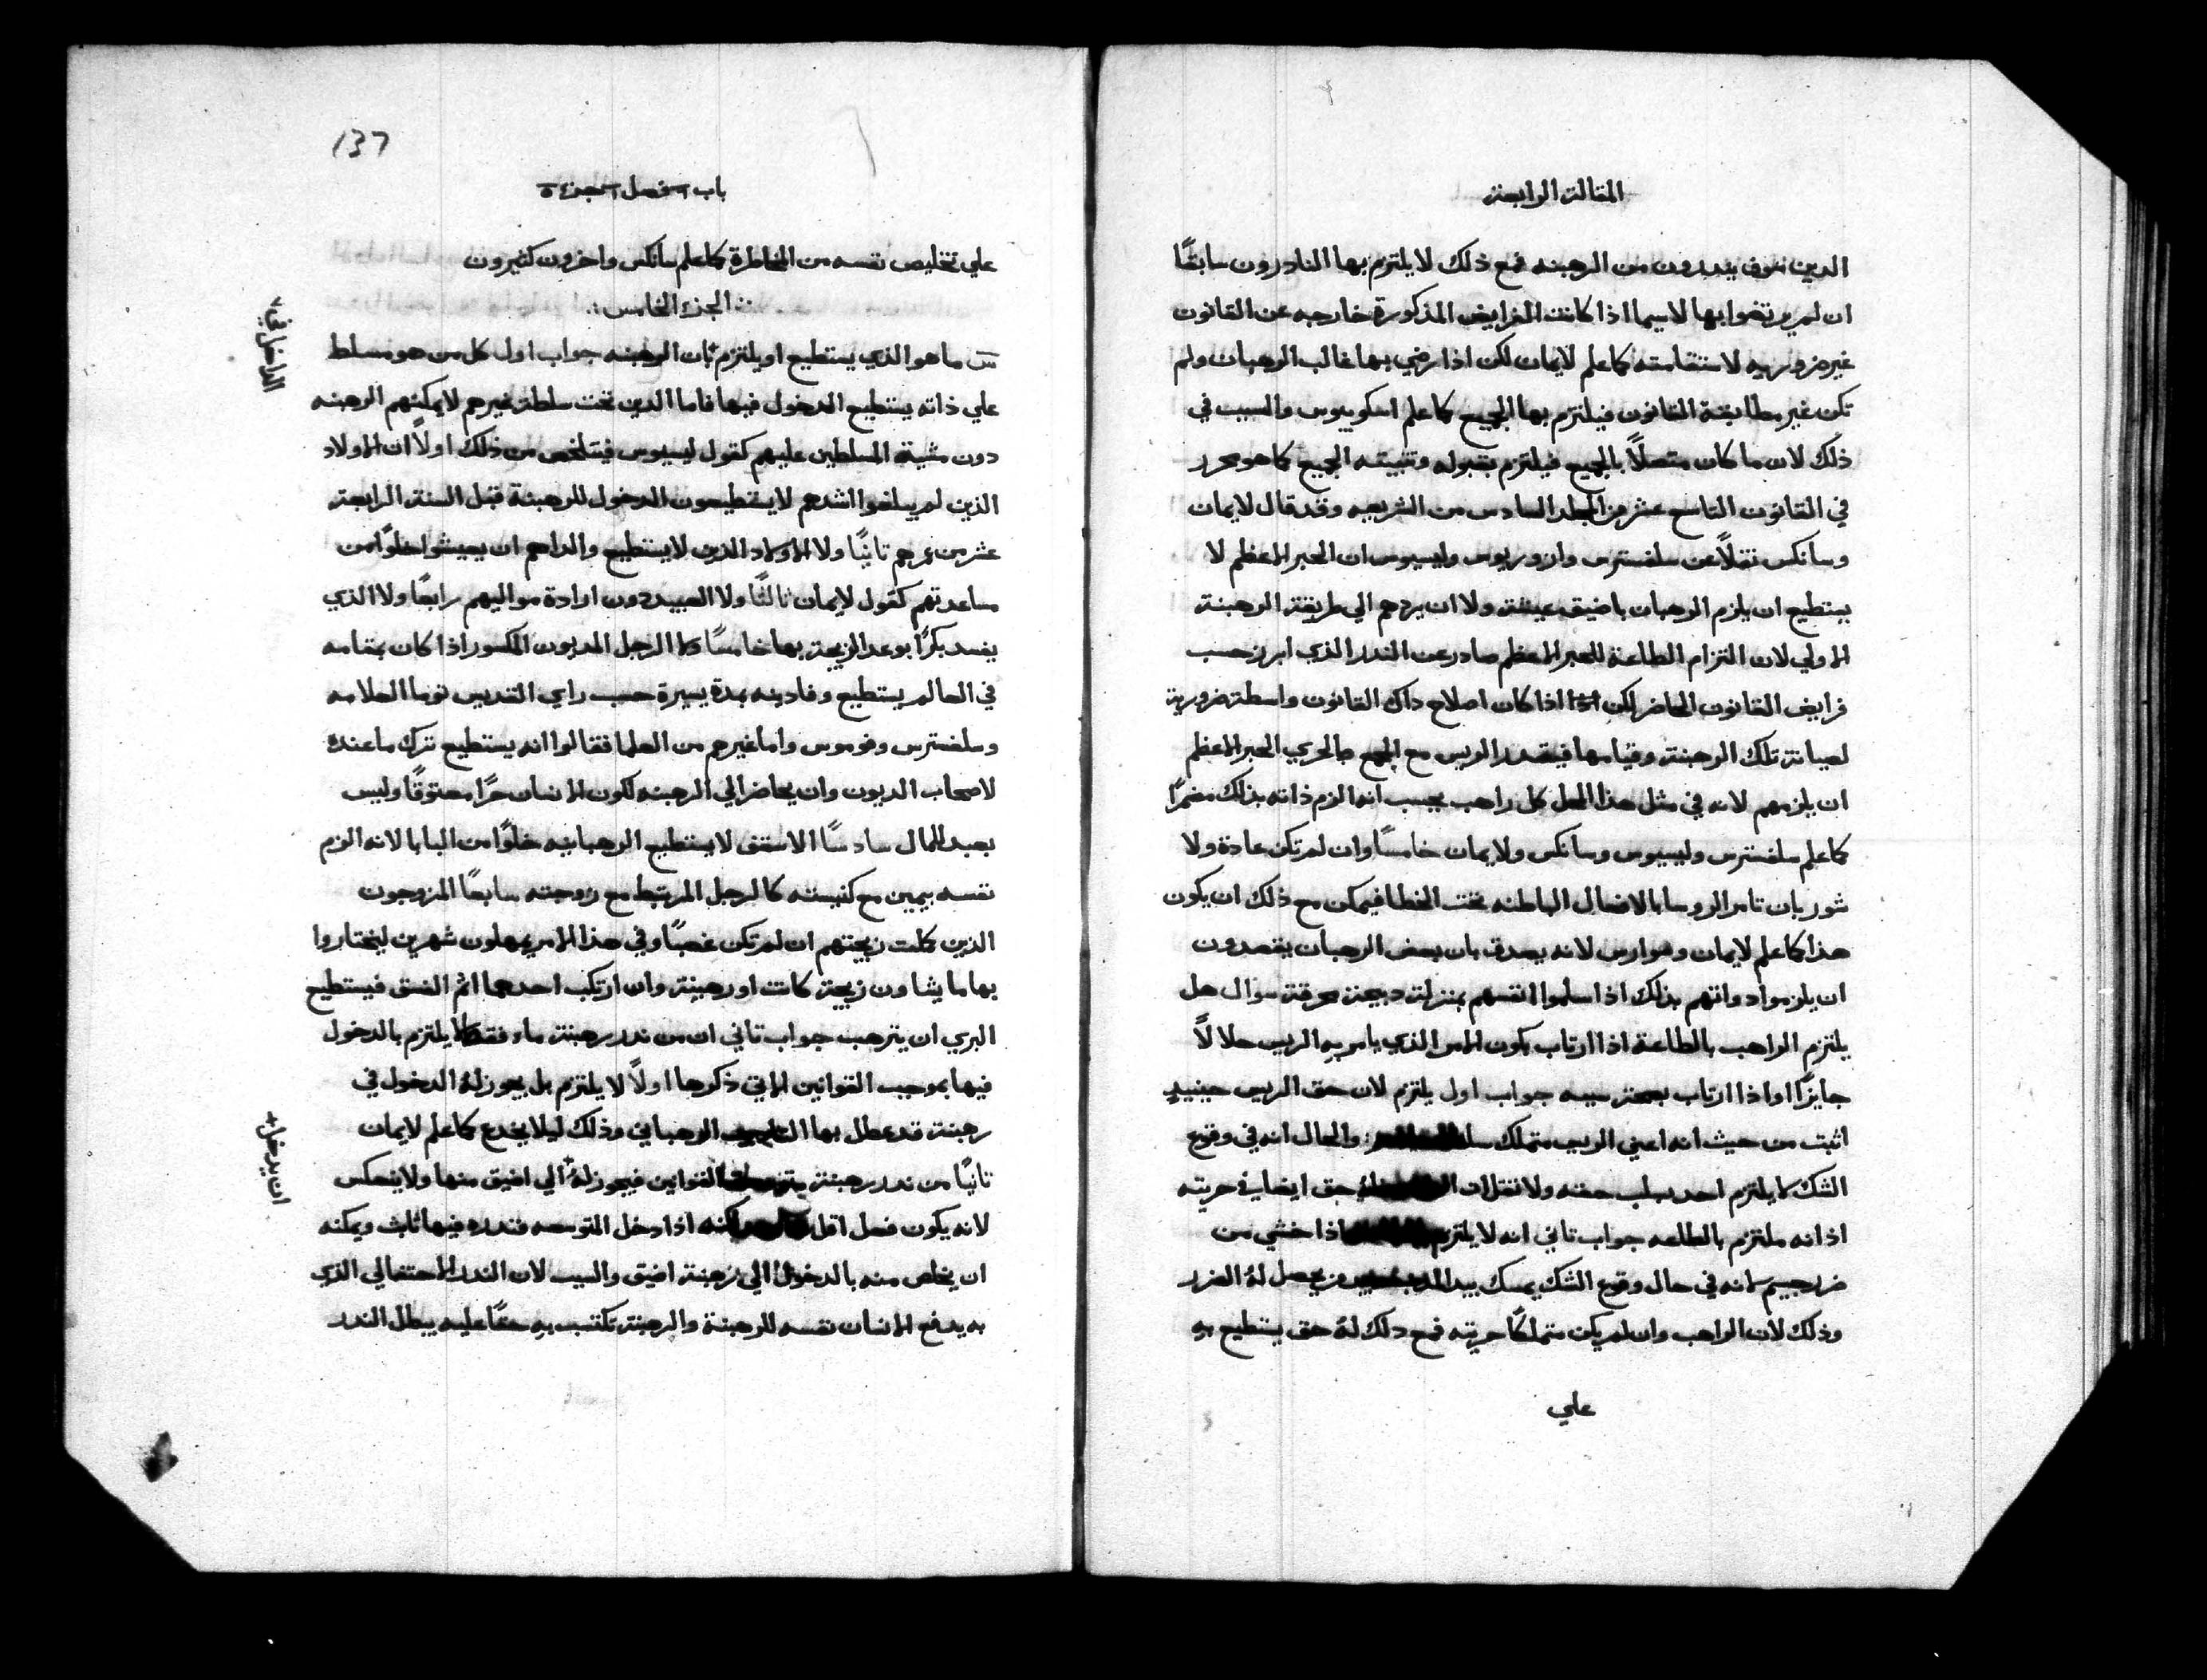 المقالة الرابعة
الدين سوف يندرون من الرهبنه فمع ذلك لا يلتزم بها النادرون سابقًا
ان لم يرتضوا بها لاسيما اذا كانت الفرايض المذكورة خارجه عن القانون
غير ضروريه لاستقامته كما علم لايمان لكن اذا رضي بها غالب الرهبان ولم
تكن غير مطابقة القانون فيلتزم بها الجميع كما علم اسكوبيوس والسبب في
ذلك لان ما كان متصلاً بالجميع فيلتزم بقبوله وتثبيته الجميع كما هو محرر
في القانون التاسع عشر من المجلد السادس من الشريعه وقد قال لايمان
وسانكس نقلاً عن سلفسترس وازوريوس وليسيوس ان الحبر الاعظم لا
يستطيع ان يلزم الرهبان باضيق عيشة ولا ان يردهم الي طريقة الرهبنة
الاولي لان التزام الطاعة للحبر الاعظم صادر عن الندر الذي ابرز حسب
فرايض القانون الحاضر لكن اذا كان اصلاح داك القانون واسطة ضرورية
لصيانة تلك الرهبنة وقيامها فيقدر الريس مع المجمع بالحري الحبر الاعظم
ان يلزمهم لانه في مثل هذا المحل كل راهب يحسب انه الزم ذاته بذلك مضمرًا
كما علم سلفسترس وليسيوس وسانكس ولايمان خامسًا وان لم تكن عادة ولا
شور بان تامر الروسا بالافعال الباطنه تحت الخطا فيمكن مع ذلك ان يكون
هذا كما علم لايمان وسوارس لانه يصدق بان بعض الرهبان يقصدون
ان يلزموا دواتهم بذلك اذا سلموا انفسهم بمنزلة دبيحة محرقة سوال هل
يلتزم الراهب بالطاعة اذا ارتاب بكون الامر الذي يامر به الريس حلالاً
جايزًا او اذا ارتاب بصحة سببه جواب اول يلتزم لان حق الريس حينيدٍ
اثبت من حيث انه اعني الريس متملك والحال انه في وقوع
الشك لا يلتزم احد بسلب حقه ولا تقل ان حق ايضا في حريته
اذ انه ملتزم بالطاعه جواب تاني انه لا يلتزم اذا خشي من
ضرر جسيم لانه في حال وقوع الشك يمسك بيد يحصل لهُ الضرر
وذلك لان الراهب وان لم يكن متملكًا حريته فمع دلك لهُ حق يستطيع بهِ
علي
137
باب فصل جزء ٥
علي تخليص نفسه من المخاطرة كما علم سانكس واخرون كثيرون
الجزء الخامس
س ما هو الذي يستطيع او يلتزم بان الرهبنه جواب اول كل من هو مسلط
علي ذاته يستطيع الدخول فيها فاما الدين تحت سلطة غيرهم لا يمكنهم الرهبنه
دون مشية المسلطين عليهم كقول ليسيوس فيتلخص من ذلك اولاً ان الاولاد
الذين لم يبلغوا اشدهم لا يستطيعون الدخول للرهبنة قبل السنة الرابعة
عشر من عمرهم تانيًا ولا الاولاد الذين لا يستطيع والداهم ان يعيشوا خلوًا من
مساعدتهم كقول لايمان تالتًا ولا العبيد دون ارادة مواليهم رابعًا ولا الذي
يفسد بكرًا بوعد الزيجة بها خامسًا ولا الرجل المديون المكسور اذا كان بمقامه
في العالم يستطيع وفا دينه بمدة يسيرة حسب راي القديس توما العلامه
وسلفسترس وغيرهم من العلما فقالوا انه يستطيع ترك ما عنده
لاصحاب الديون وان يحاضر الي الرهبنه لكون الانسان حرًا معتوقًا وليس
بعبد للمال سادسًا الاسقف لا يستطيع الرهبانيه خلوًا من البابا لانه الزم
نفسه بيمين مع كنيسته كالرجل المرتبط مع زوجته سابعًا المزوجون
الذين كملت زيجتهم ان لم تكن غصبًا وفي هذا الامر يمهلون شهرين ليختاروا
بها ما يشاون زيجة كانت او رهبنة وان ارتكب احدهما اثم الفسق فيستطيع
البري ان يترهب جواب تاني ان من ندر رهبنة ماء فقط لا يلتزم بالدخول
فيها بموجب القوانين الاتي ذكرها اولاً لا يلتزم بل يجوز لهُ الدخول في
رهبنة قد عطل بها الرهباني وذلك ليلا يخدع كما علم لايمان
تانيًا من ندر رهبنة القوانين فيجوز لهُ الي اضيق منها ولا ينعكس
لانه يكون فعل اقل لكنه اذا دخل المتوسعه فندره فيها تابت ويمكنه
ان يخلص منه بالدخول الي رهبنة اضيق والسبب لان الندر الاحتفالي الذي
به يدفع الانسان نفسه للرهبنة والرهبنة تكتسب به حقًا عليه يبطل الندر
الداخل في
ان يدخل